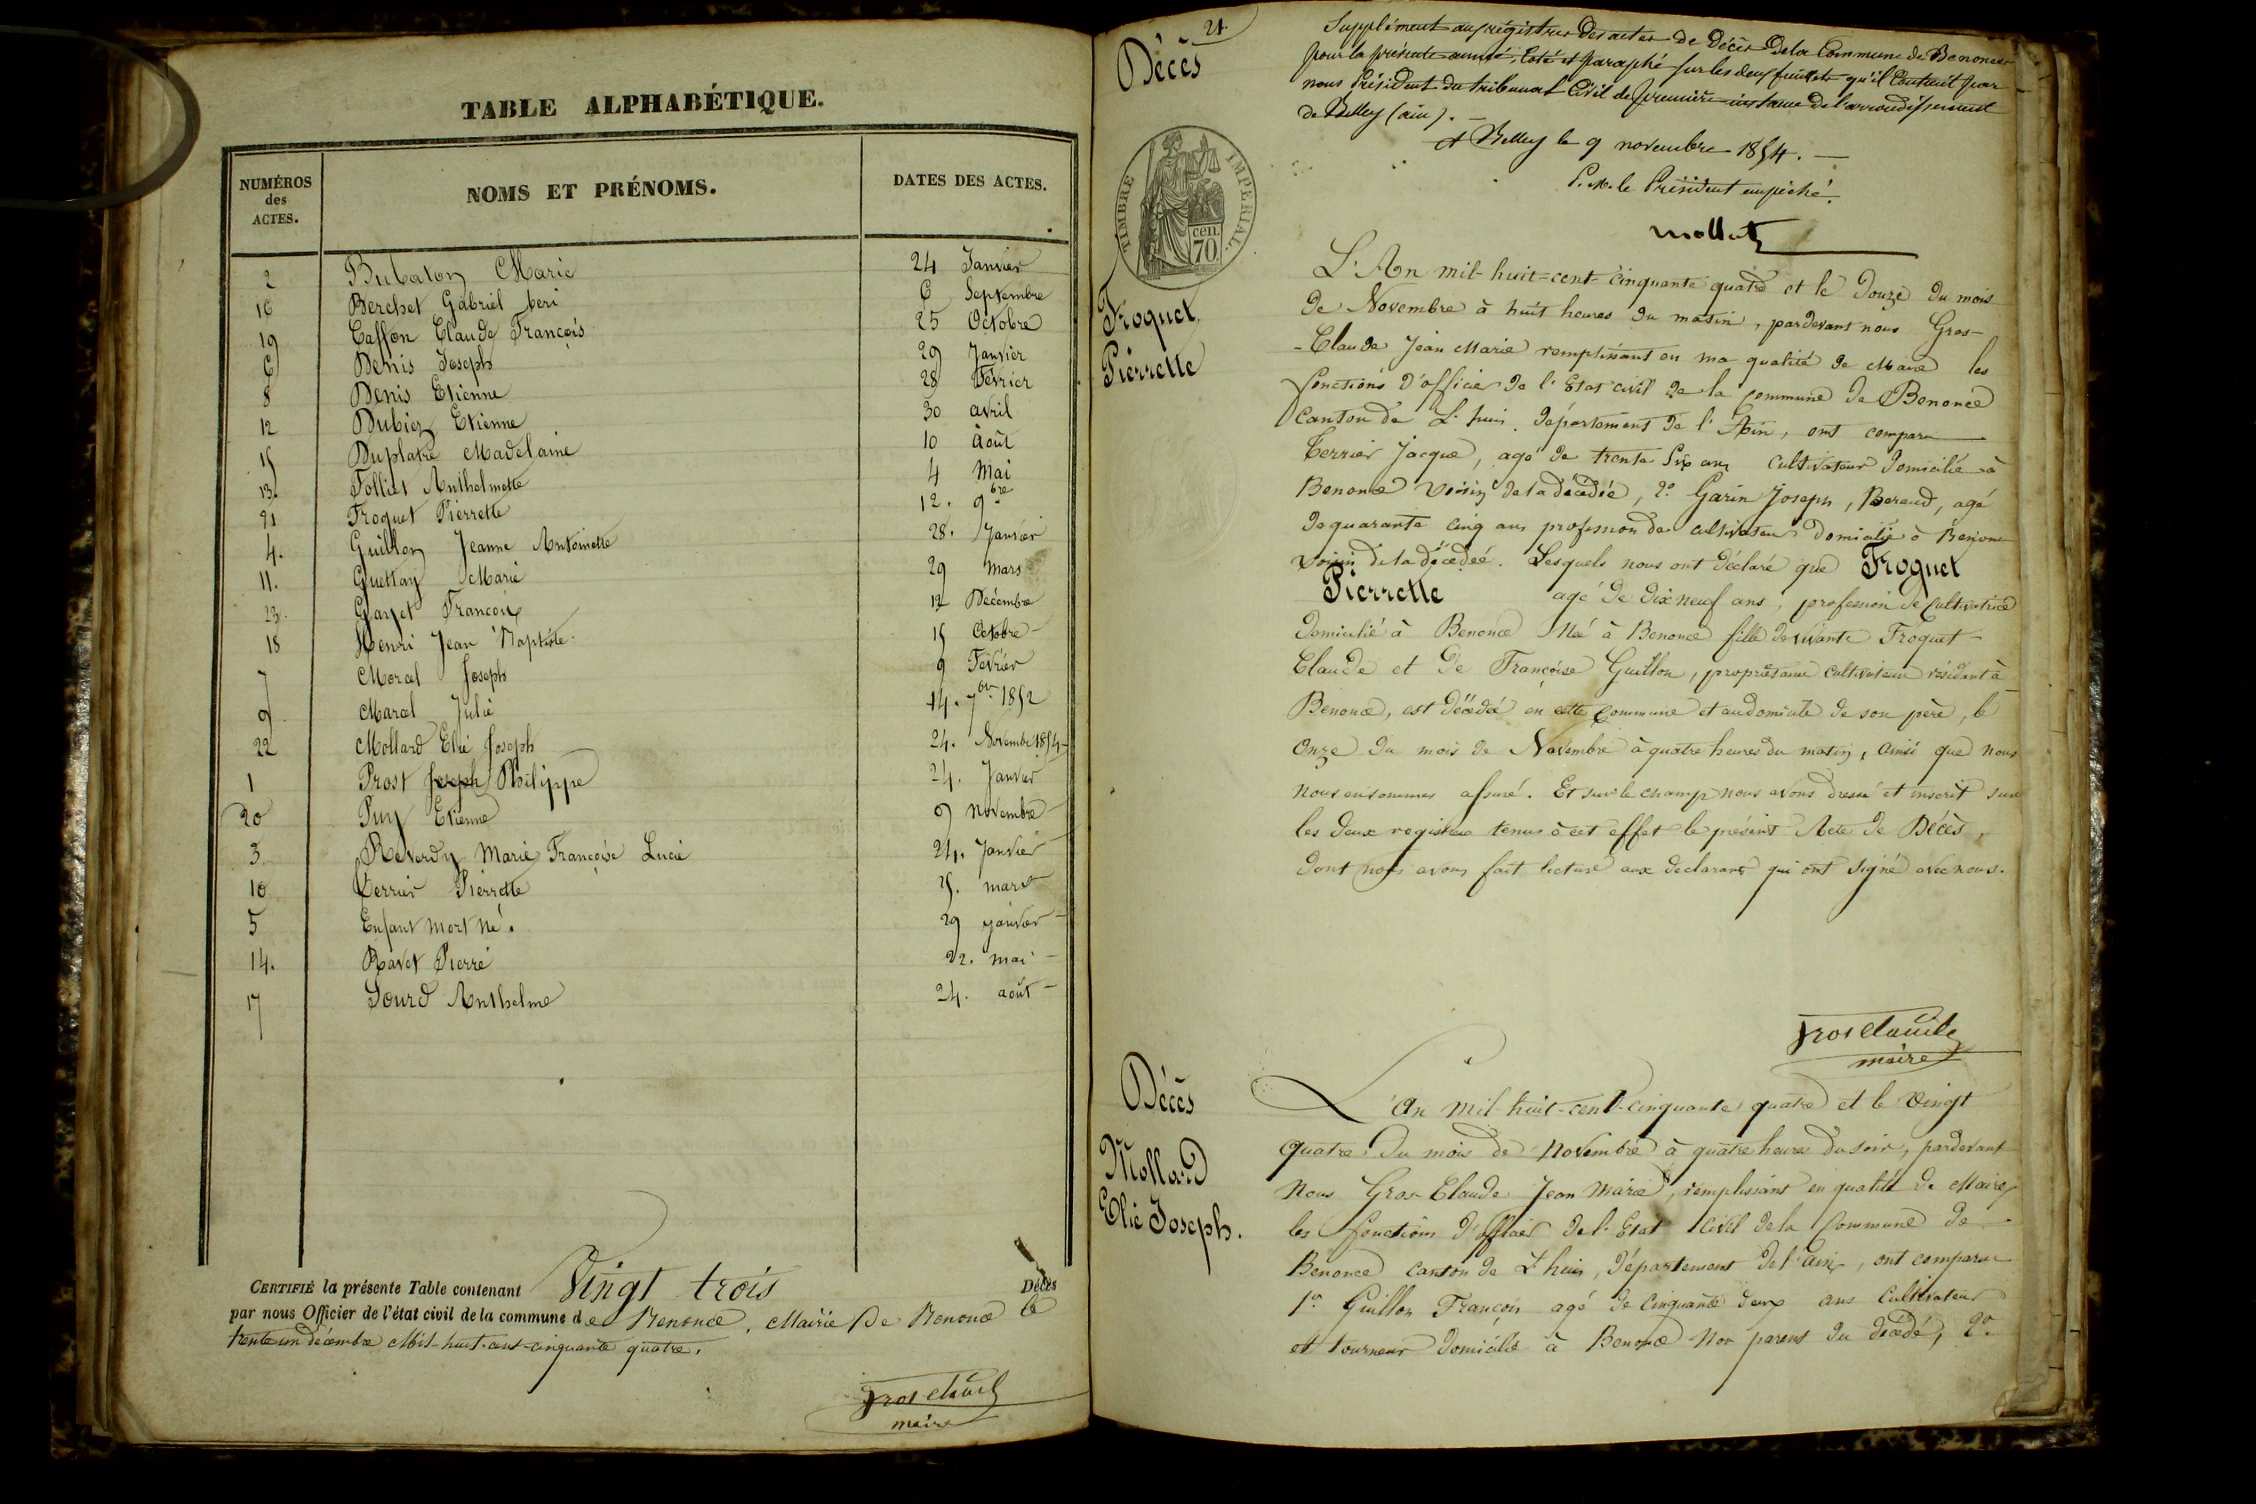 TABLE ALPHABÉTIQUE.
NUMÉROS
des
ACTES.
NOMS ET PRÉNOMS.
DATES DES ACTES.
2 Bubaton Marie 24 Janvier
16 Berchet Gabriel 6 Septembre
19 Caffon Claude François 25 Octobre
6 Denis Joseph 29 Janvier
8 Denis Etienne 28 Février
12 Dubiez Etienne 30 avril
15 Duplatre Madelaine 10 Août
13. Folliet Anthelmette 4 Mai
21 Froquet Pierrette 12. 9bre
4. Guillon Jeanne Antoinette 28. Janvier
11. Guettay Marie 29 Mars
23. Ganet François 12 Décembre
18 Henri Jean Baptiste 15 Octobre
7 Morcel Joseph 9 Février
9 Marcel Julie 14. 7bre 1852
22 Mollard Elie Joseph 24. Novembre 1854
1 Prost Joseph Philippe 24. Janvier
20 Puy Etienne 9 Novembre
3 Reverdy Marie Françoise Lucie 24. Janvier
10 Terrier Pierrette 25. mars
5 Enfant mort né. 29 janvier
14. Ravet Pierre 22. mai
17 Sourd Anthelme 24. août
CERTIFIÉ la présente Table contenant Vingt trois Décès
par nous Officier de l'état civil de la commune de Benonce, Mairie De Benonce le
trente un décembre Mil-huit-cent-cinquante quatre.
Gros Claude
maire
21.
Décès
Supplément aux régistres des actes de Décès de la Commune de Benonce
pour la présente année, Coté et paraphé sur les deux feuillets qu'il Contient par
nous Président du tribunal Civil de première instance de l'arrondissement
de Belley (ain).
A Belley le 9 novembre 1854.
le Président empêché.
TIMBRE IMPERIAL.
cen.
70
Froquet
Pierrette
L'An mil-huit-cent-cinquante quatre et le Douze du mois
de Novembre à huit heures du matin, pardevant nous Gros-
-Claude Jean Marie remplissant en ma qualité de Maire les
fonctions d'officier de l'Etat civil de la commune de Benonce
Canton de L'huis, département de l'Ain, ont comparu
Terrier Jacque, agé de trente six ans cultivateur domicilié à
Benonce voisin de la décédée, 2° Garin Joseph, Beraud, agé
de quarante cinq ans profession de cultivateur domicilié à Benonce
voisin de la décédée. Lesquels nous ont déclaré que Froquet
Pierrette agé de dix neuf ans, profession de cultivatrice
domicilié à Benonce Née à Benonce fille de vivante Froquet
Claude et de Françoise Guillon, propriétaire cultivateur résidant à
Benonce, est décédée en cette commune et au domicile de son père, le
Onze du mois de Novembre à quatre heures du matin, ainsi que nous
nous en sommes assuré. Et sur le champ nous avons dressé et inscrit sur
les deux registres tenus à cet effet le présent Acte de Décès,
dont nous avons fait lecture aux déclarants qui ont signé avec nous.
Gros Claude
maire
Décès
Mollard
Elie Joseph.
L'An mil-huit-cent-cinquante quatre et le vingt
quatre du mois de Novembre à quatre heures du soir, pardevant
Nous Gros-Claude Jean Marie, remplissant en qualité de Maire,
les fonctions d'officier de l'Etat Civil de la Commune de
Benonce canton de L'huis, département de l'ain, ont comparu
1° Guillon François agé de cinquante deux ans cultivateur
et tourneur domicilié à Benonce Non parent du décédé, 2°